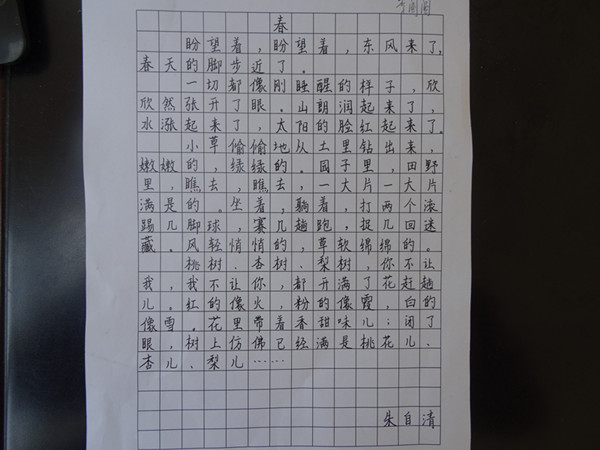 春
盼望着，盼望着，东风来了，
春天的脚步近了。
一切都像刚睡醒的样子，欣
欣然张开了眼。山朗润起来了，
水涨起来了，太阳的脸红起来了。
小草偷偷地从土里钻出来，
嫩嫩的，绿绿的。园子里，田野
里，瞧去，瞧去，一大片一大片
满是的。坐着，躺着，打两个滚
踢几脚球，赛几趟跑，捉几回迷
藏。风轻悄悄的，草软绵绵的。
桃树、杏树、梨树，你不让
我，我不让你，都开满了花赶趟
儿。红的像火，粉的像霞，白的
像雪。花里带着香甜味儿；闭了
眼，树上仿佛已经满是桃花儿、
杏儿、梨儿……
朱自清